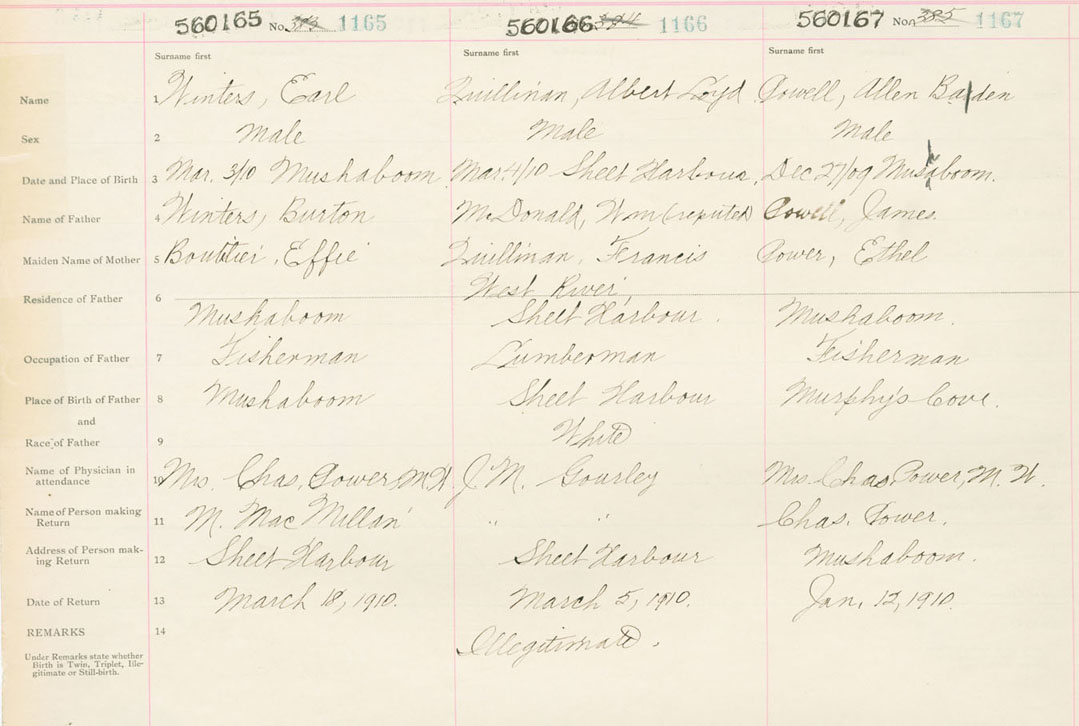 560165 No. 1165 560166 1166 560167 No. 1167
Surname first Surname first Surname first
Name 1 Winters, Earl Quillinan, Albert Loyd Powell, Allen Ba den
Sex 2 Male Male Male
Date and Place of Birth 3 Mar. 3/10 Mushaboom Mar. 4/10 Sheet Harbour. Dec 27/09 Mushaboom.
Name of Father 4 Winters, Burton McDonald, Wm (reputed) Powell, James
Maiden Name of Mother 5 Boutilier, Effie Quillinan, Francis Power, Ethel
West River,
Residence of Father 6 Mushaboom Sheet Harbour. Mushaboom.
Occupation of Father 7 Fisherman Lumberman Fisherman
Place of Birth of Father 8 Mushaboom Sheet Harbour Murphy's Cove.
and
Race of Father 9 White
Name of Physician in
attendance 10 Mrs. Chas. Power, M.W. J M. Gourley Mrs. Chas. Power, M. W.
Name of Person making
Return 11 M. MacMillan " " Chas. Power.
Address of Person mak-
ing Return 12 Sheet Harbour Sheet Harbour Mushaboom.
Date of Return 13 March 18, 1910. March 5, 1910. Jan. 12, 1910.
REMARKS 14 Illegitimate.
Under Remarks state whether
Birth is Twin, Triplet, Ille-
gitimate or Still-birth.